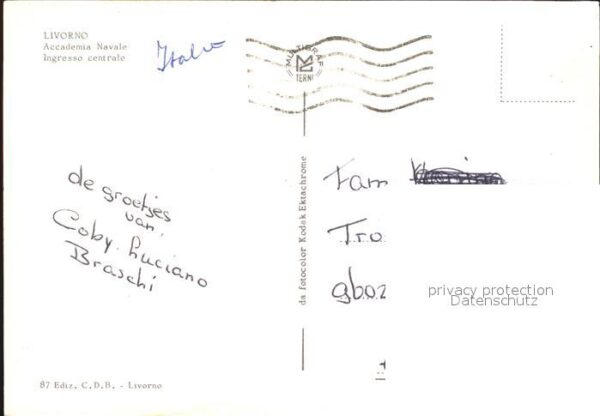 LIVORNO
Accademia Navale
Ingresso centrale
Italie
MULTIGRAF
TERNI
de groetjes
van.
Coby. Luciano
Braschi
da fotocolor Kodak Ektachrome
Fam
Tro
gboz
privacy protection
Datenschutz
87 Ediz. C.D.B. - Livorno